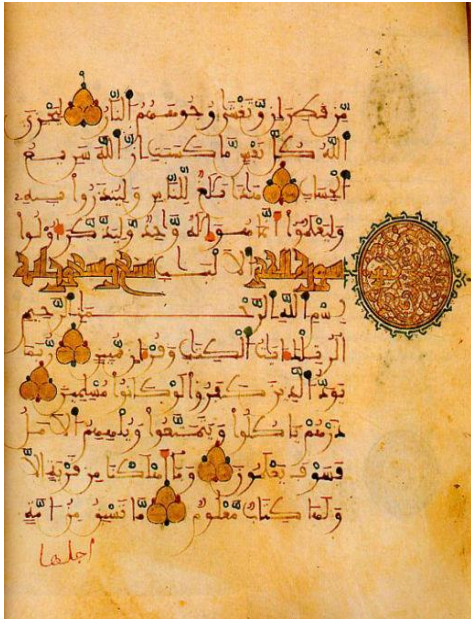 من قطران وتغشى وجوههم النار ليجزي
الله كل نفس ما كسبت إن الله سريع
الحساب هذا بلغ للناس ولينذروا به
وليعلموا أنما هو إله وحد وليذكر أولوا
سورة الحجر الألباب تسع وتسعون آية
بسم الله الرحمن الرحيم
الر تلك ءايت الكتب وقرءان مبين ربما
يود الذين كفروا لو كانوا مسلمين
ذرهم ياكلوا ويتمتعوا ويلههم الأمل
فسوف يعلمون وما أهلكنا من قرية إلا
ولها كتاب معلوم ما تسبق من أمة
اجلها